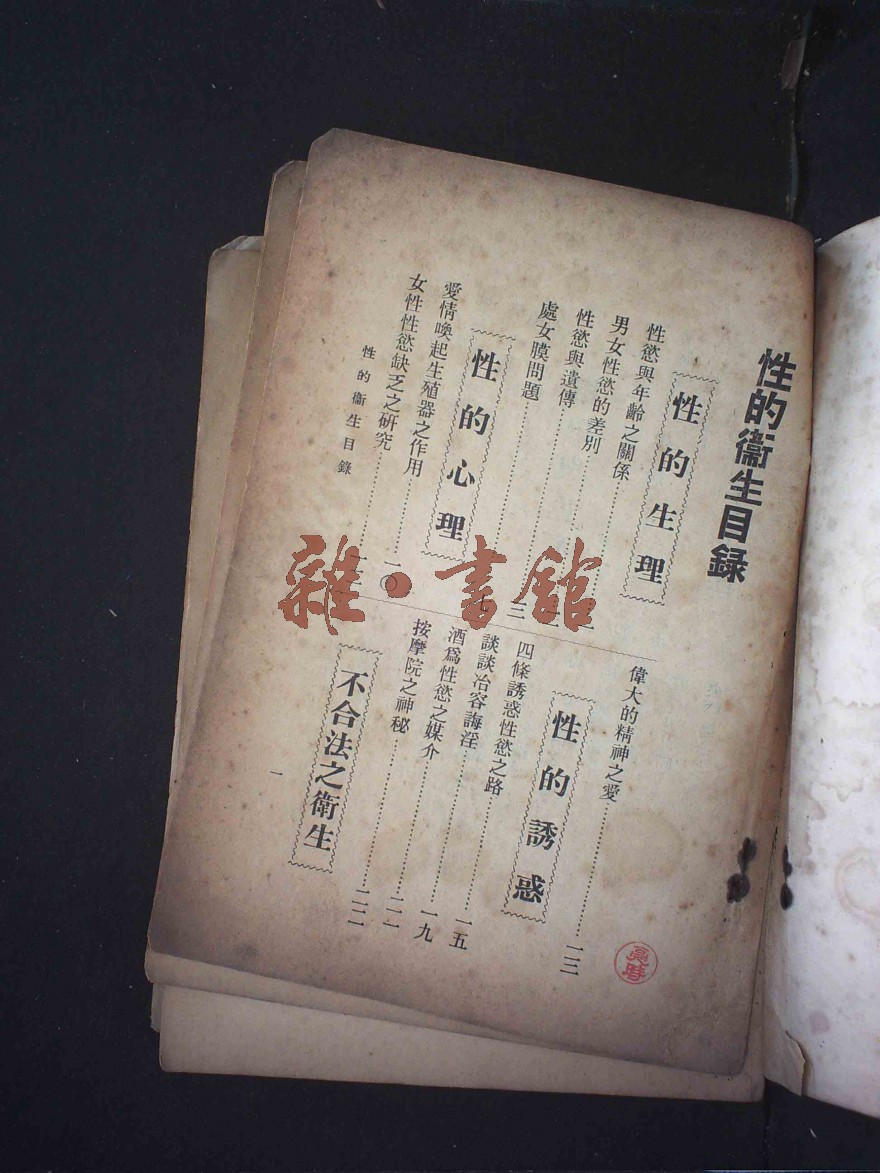 性的衛生目錄
性的生理
性慾與年齡之關係
男女性慾的差別
性慾與遺傳
處女膜問題……三
性的心理
愛情喚起生殖器之作用……一〇
女性性慾缺乏之研究
性的衞生目錄
偉大的精神之愛……一三
性的誘惑
四條誘惑性慾之路……一五
談談冶容誨淫……一九
酒爲性慾之媒介……二一
按摩院之神秘……二二
不合法之衛生
一
雜·書館